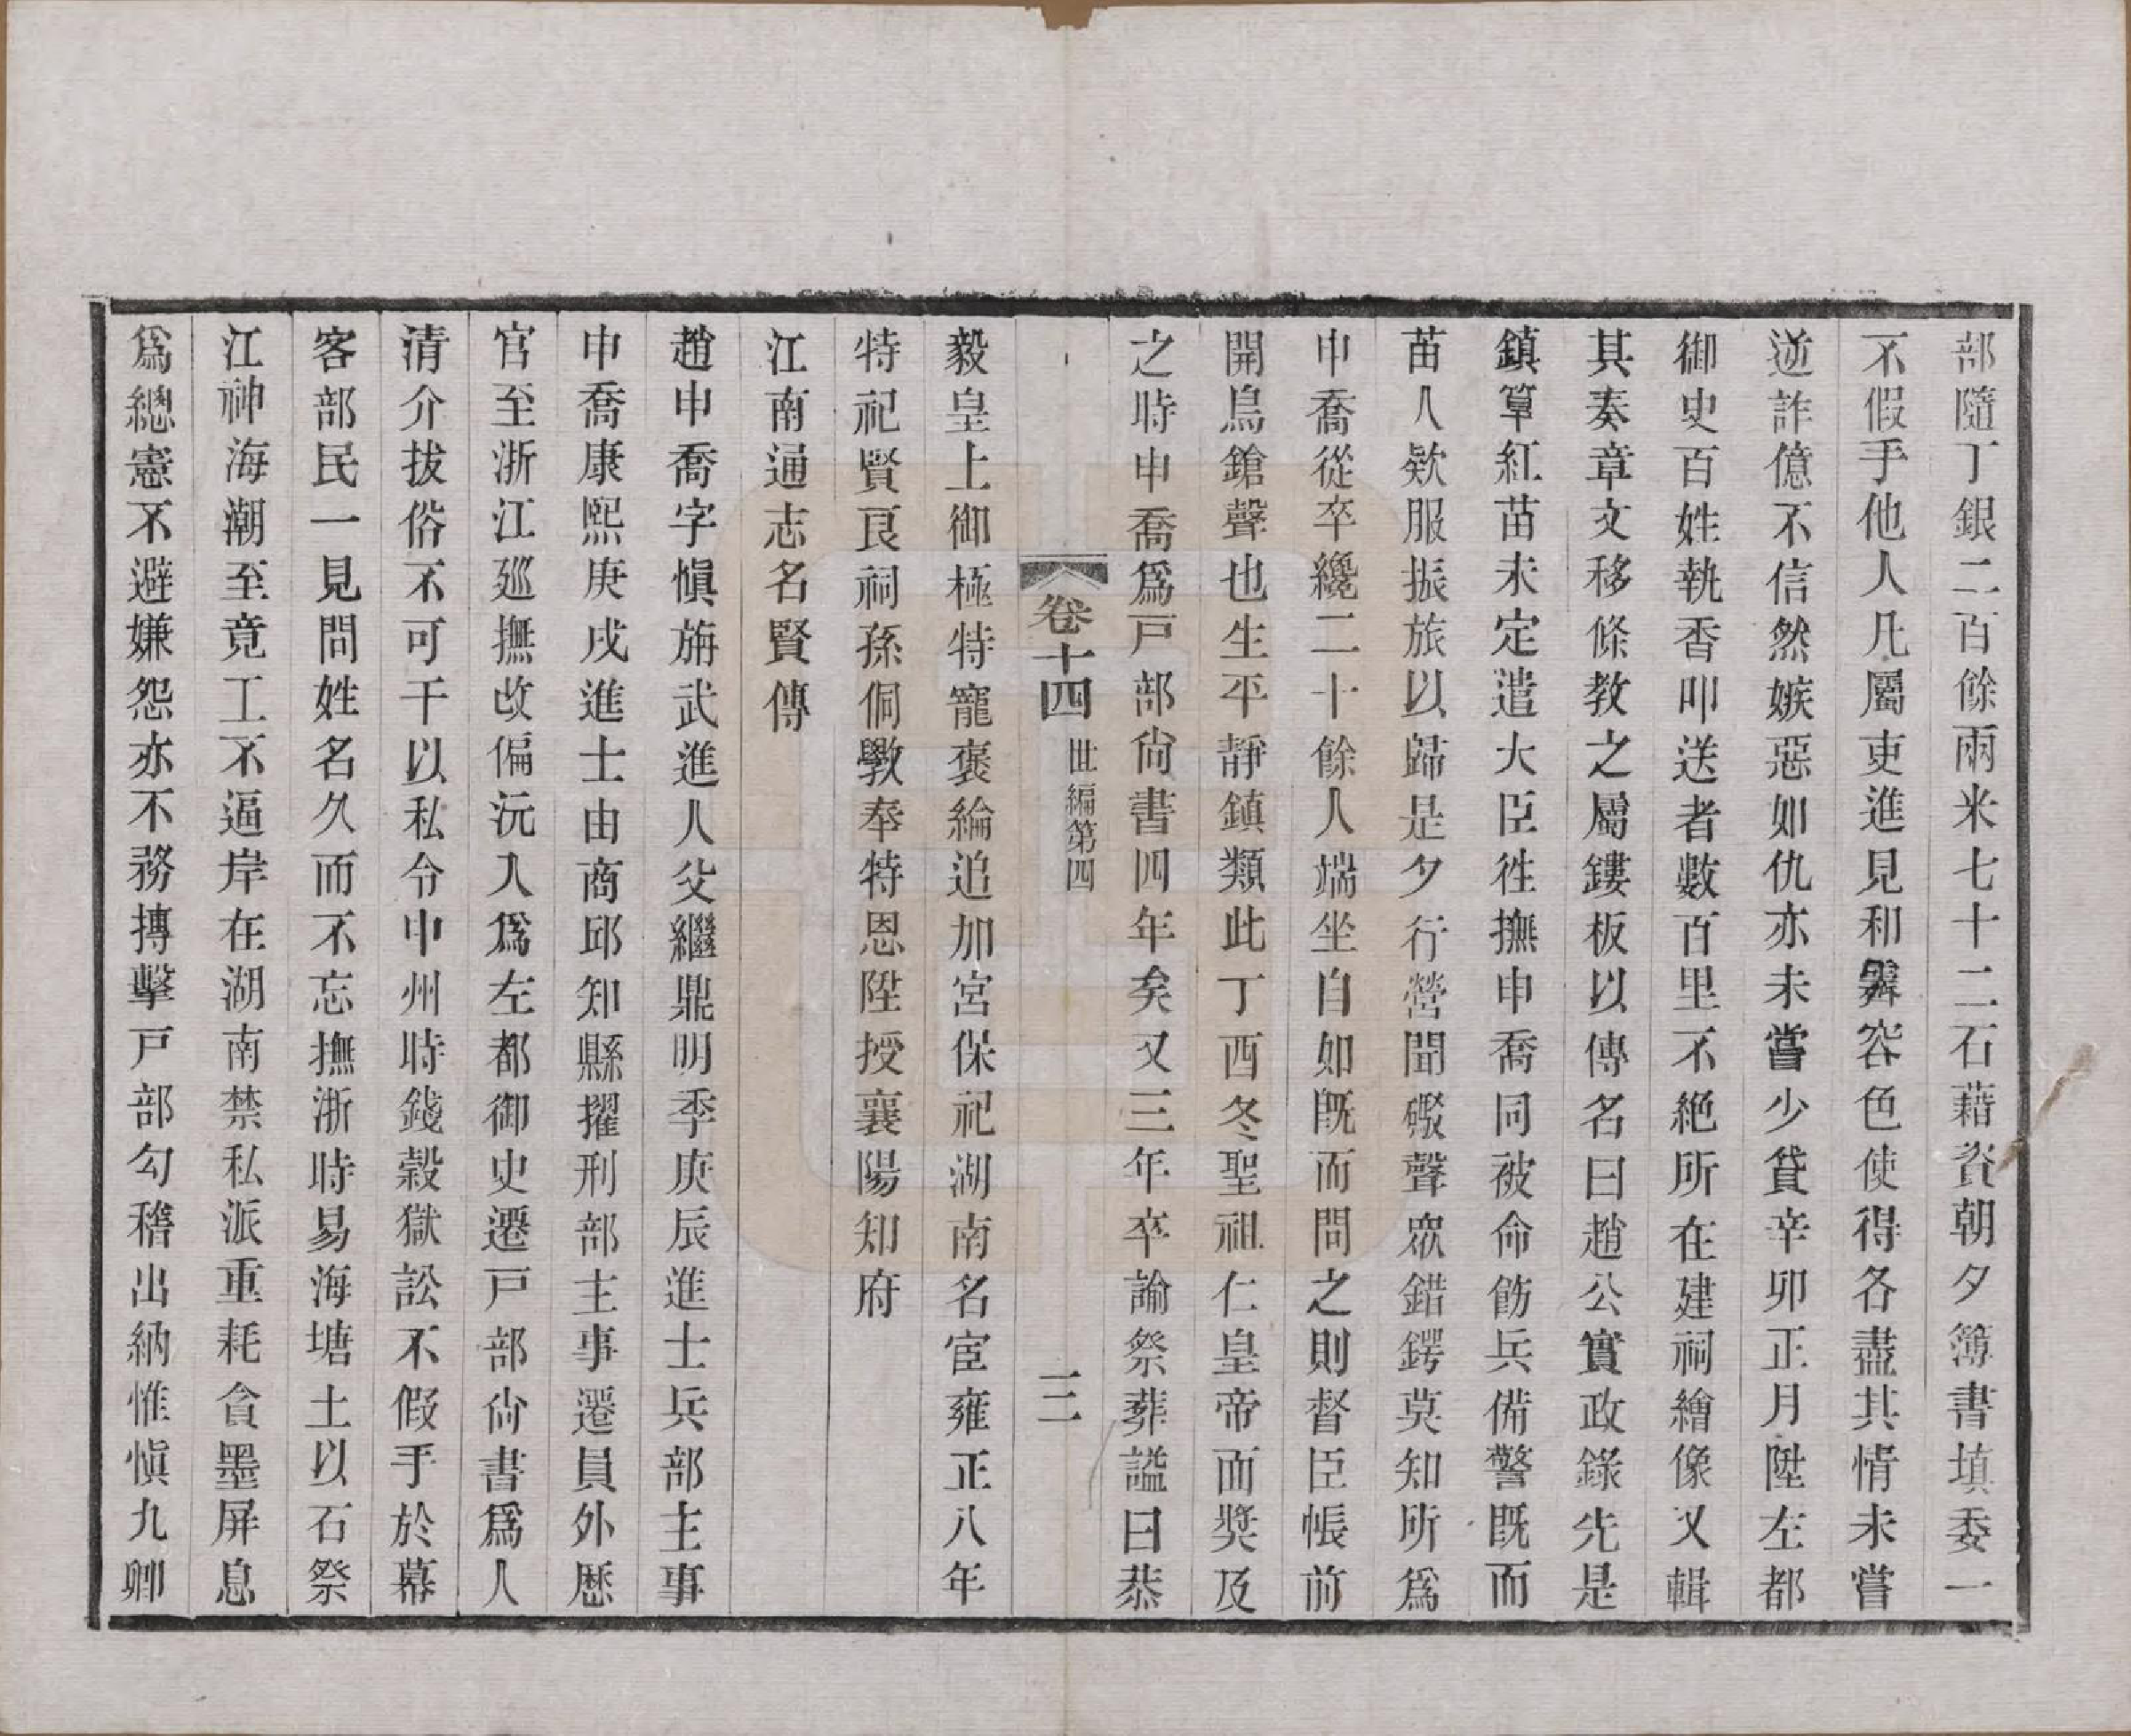 部隨丁銀二百餘兩米七十二石藉資朝夕簿書填委一
不假手他人凡屬吏進見和霽容色使得各盡其情未嘗
逆詐億不信然嫉惡如仇亦未嘗少貸辛卯正月陞左都
御史百姓執香叩送者數百里不絶所在建祠繪像又輯
其奏章文移條教之屬鏤板以傳名曰趙公實政錄先是
鎮筸紅苗未定遣大臣徃撫申喬同被命飭兵備警既而
苗人欵服振旅以歸是夕行營聞礮聲眾錯鍔莫知所爲
申喬從卒纔二十餘人端坐自如旣而問之則督臣帳前
開鳥鎗聲也生平靜鎮類此丁酉冬聖祖仁皇帝面奬及
之時申喬爲戸部尙書四年矣又三年卒諭祭葬謚曰恭
卷十四 世編第四 三
毅皇上御極特寵褒綸追加宮保祀湖南名宦雍正八年
特祀賢良祠孫侗斆奉特恩陞授襄陽知府
江南通志名賢傳
趙申喬字愼旃武進人父繼鼎明季庚辰進士兵部主事
申喬康熙庚戌進士由商邱知縣擢刑部主事遷員外歷
官至浙江廵撫改偏沅入爲左都御史遷戸部尙書爲人
清介拔俗不可干以私令中州時錢穀獄訟不假手於幕
客部民一見問姓名久而不忘撫浙時易海塘土以石祭
江神海潮至竟工不逼岸在湖南禁私派重耗貪墨屏息
爲總憲不避嫌怨亦不務摶擊戸部勾稽出納惟愼九卿